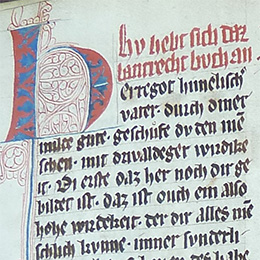 hv hebt sich daz
lantrecht buch an.
herregot himelisch
vater durch diner
milte gute. geschufe du den mē
schen. mit drivaldeger wirdike
it. Di erste daz her noch dir ge
bildet ist. daz ist ouch ein also
hohe wirdekeit. der dir alles mē
schlich kvnne. immer sunderli